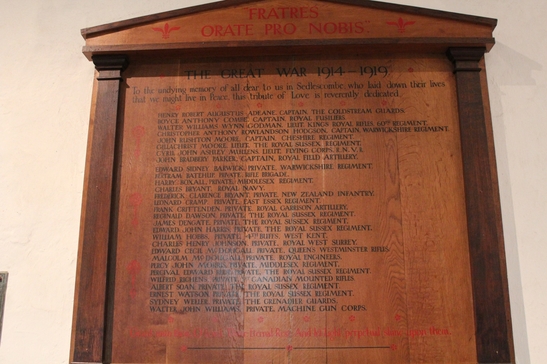 "FRATRES
ORATE PRO NOBIS"
THE GREAT WAR 1914-1919
To the undying memory of all dear to us in Sedlescombe who laid down their lives
that we might live in Peace, this tribute of Love is reverently dedicated.
HENRY ROBERT AUGUSTUS ADEANE, CAPTAIN, THE COLDSTREAM GUARDS.
BOYCE ANTHONY COMBE, CAPTAIN, ROYAL FUSILIERS.
WALTER WILLIAM WYNNE, LIEUT. KINGS ROYAL RIFLES, 60TH REGIMENT.
CHRISTOPHER ANTHONY ROWLANDSON HODGSON, CAPTAIN, WARWICKSHIRE REGIMENT.
JOHN MOORE, CAPTAIN, CHESHIRE REGIMENT.
GILLACHRIST MOORE, LIEUT. THE ROYAL SUSSEX REGIMENT.
CYRIL JOHN ASHLEY LIEUT. FLYING CORPS, R.N.V.R.
JOHN BRADBERY PARKER, CAPTAIN, ROYAL FIELD ARTILLERY.
EDWARD SIDNEY BARWICK, PRIVATE, WARWICKSHIRE REGIMENT.
BATEHUP, PRIVATE, RIFLE BRIGADE.
HARRY BOXALL, PRIVATE, MIDDLESEX REGIMENT.
CHARLES BRYANT, ROYAL NAVY.
FREDERICK CLARENCE BRYANT, PRIVATE, NEW ZEALAND INFANTRY.
LEONARD CRUMP, PRIVATE, EAST ESSEX REGIMENT.
FRANK CRITTENDEN, PRIVATE, ROYAL GARRISON ARTILLERY.
REGINALD DAWSON, PRIVATE, THE ROYAL SUSSEX REGIMENT.
JAMES DENGATE, PRIVATE, THE ROYAL SUSSEX REGIMENT.
EDWARD JOHN HARRIS, PRIVATE, THE ROYAL SUSSEX REGIMENT.
WILLIAM HOBBS, PRIVATE, BUFFS, WEST KENT.
CHARLES HENRY JOHNSON, PRIVATE, ROYAL WEST SURREY.
EDWARD CECIL PRIVATE, QUEENS WESTMINSTER RIFLES.
MALCOLM PRIVATE, ROYAL ENGINEERS.
PERCY JOHN PRIVATE, MIDDLESEX REGIMENT.
PERCIVAL EDWARD PRIVATE, THE ROYAL SUSSEX REGIMENT.
WILFRED PRIVATE, CANADIAN MOUNTED RIFLES.
ALBERT SOAN, PRIVATE, ROYAL SUSSEX REGIMENT.
ERNEST WATSON, PRIVATE, THE ROYAL SUSSEX REGIMENT.
SYDNEY WELLER, PRIVATE, THE GRENADIER GUARDS.
WALTER JOHN WILLIAMS, PRIVATE, MACHINE GUN CORPS.
Eternal Rest. And let light perpetual shine upon them.